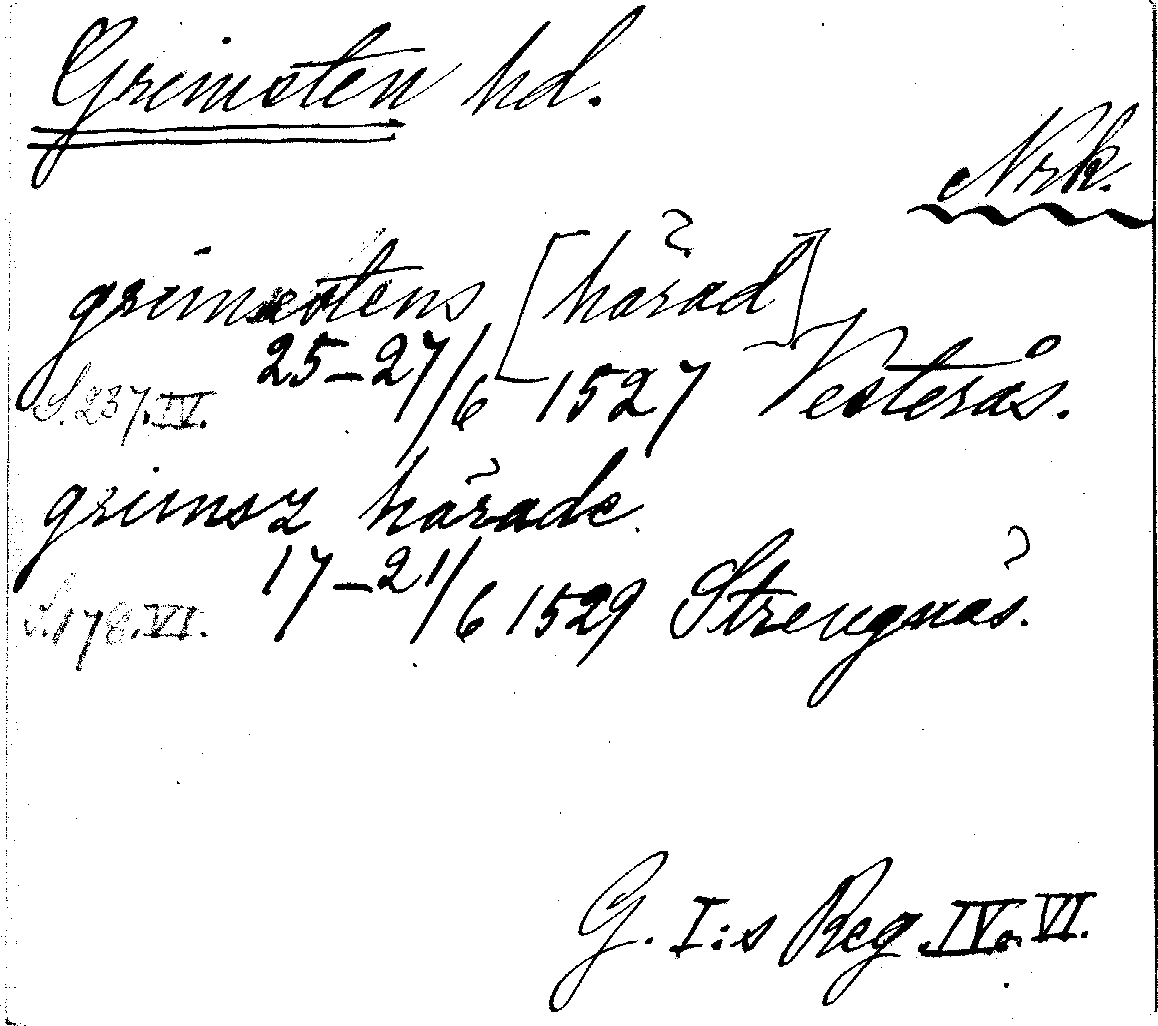 Grimsten hd.
Nrk.
grimstens [härad]
S. 237. IV. 25-27/6 1527 Vesterås.
grimsz härade.
S. 178. VI. 17-21/6 1529 Strengnäs.
G. I:s Reg. IV o. VI.